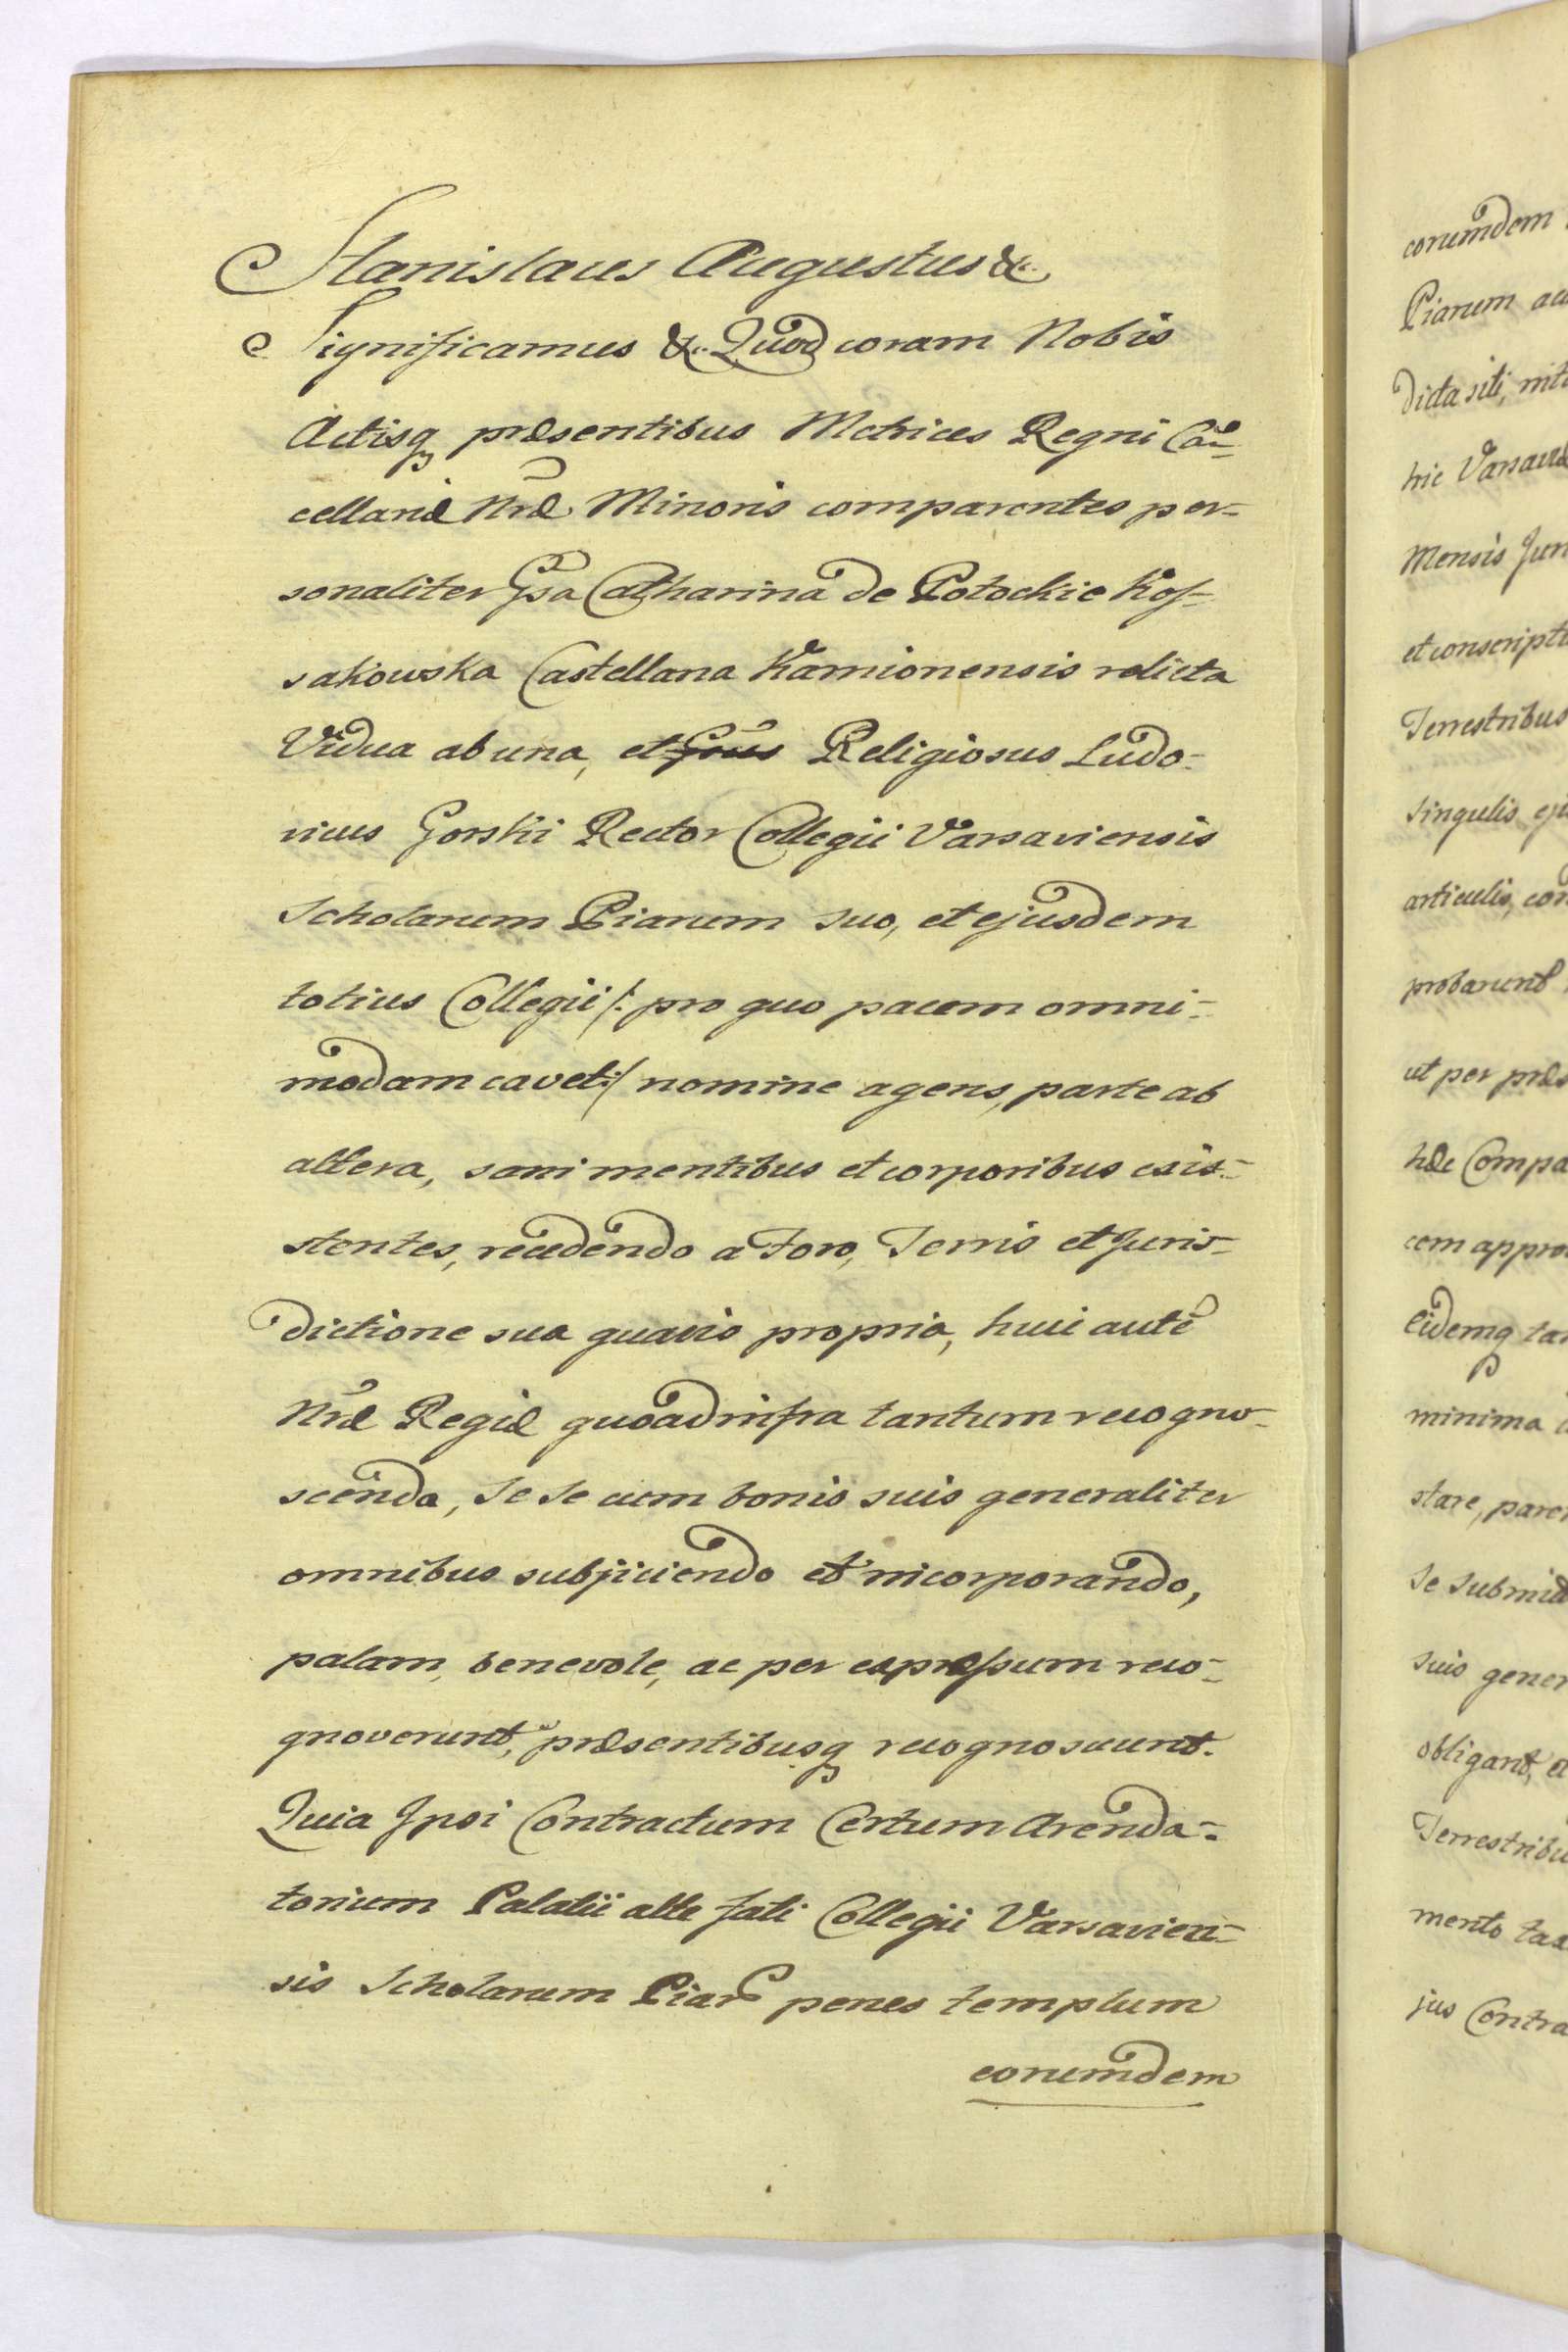 Stanislaus Augustus &c.
Significamus &c. Quod coram Nobis
Actisq presentibus Metrices Regni Can-
cellariæ Nræ Minoris comparentes per-
sonaliter Gsa Catharina de Potockie Kos-
sakowska Castellana Kamionensis relicta
Vidua ab una, et Gnus Religiosus Ludo-
vicus Gorski Rector Collegii Varsaviensis
Scholarum Piarum suo, et ejusdem
totius Collegii /: pro quo pacem omni-
modam cavet :/ nomine agens, parte ab
altera, sani mentibus et corporibus exis-
stentes, recedendo a Foro, Terris et Juris-
dictione sua quavis propria, huic autē
Nræ Regiæ quoad infra tantum recogno-
scenda, se se cum bonis suis generaliter
omnibus subjiciendo et incorporando,
palam, benevole, ac per expressum reco-
gnoverunt, præsentibusq recognoscunt.
Quia Ipsi Contractum Certum Arenda-
torium Palatii alte fati Collegii Varsavien-
sis Scholarum Piar penes templum
eorumdem
corumdem
Piarum
Dicta siti,
hic Varsaviæ
Mensis
et conscript
Terrestribus
singulis
articulis,
probarunt
ut per
hæc Compa
cem
Eidemq
minima
stare,
se
suis gener
obligant, et
Terrestribu
mento
jus Contra